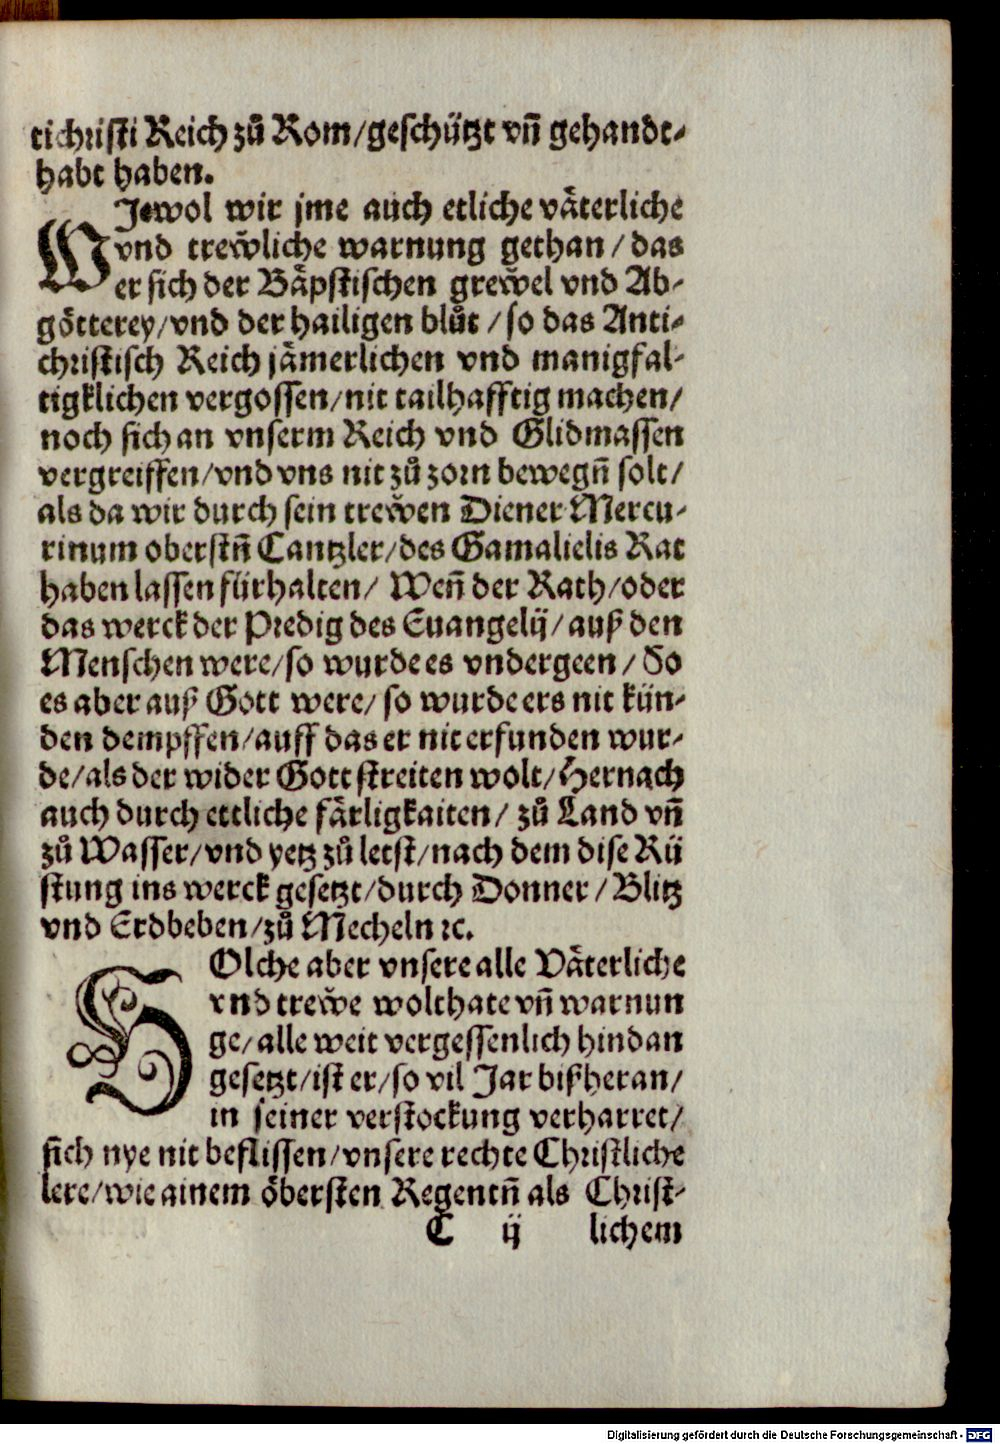 tichristi Reich zů Rom/geschützt vñ gehandt-
habt haben.
WJewol wir jme auch etliche väterliche
vnd trewͤliche warnung gethan/das
er sich der Bäpstischen grewͤel vnd Ab-
götterey/vnd der hailigen blůt/so das Anti-
christisch Reich jämerlichen vnd manigfal-
tigklichen vergossen/nit tailhafftig machen/
noch sich an vnserm Reich vnd Glidmassen
vergreiffen/vnd vns nit zů zorn bewegñ solt/
als da wir durch sein trewͤen Diener Mercu-
rinum oberstñ Cantzler/des Gamalielis Rat
haben lassen fürhalten/ Weñ der Rath/oder
das werck der Predig des Euangelij/auß den
Menschen were/so wurde es vndergeen/So
es aber auß Gott were/so wurde ers nit kün-
den dempffen/auff das er nit erfunden wur-
de/als der wider Gott streiten wolt/Hernach
auch durch ettliche färligkaiten/ zů Land vñ
zů Wasser/vnd yetz zů letst/nach dem dise Rü
stung ins werck gesetzt/durch Donner/Blitz
vnd Erdbeben/zů Mecheln ꝛc.
SOlche aber vnsere alle Väterliche
vnd trewͤe wolthate vñ warnun
ge/alle weit vergessenlich hindan
gesetzt/ist er/so vil Jar bißheran/
in seiner verstockung verharret/
sich nye nit beflissen/vnsere rechte Christliche
lere/wie ainem öbersten Regentñ als Christ-
C ij lichem
Digitalisierung gefördert durch die Deutsche Forschungsgemeinschaft - DFG